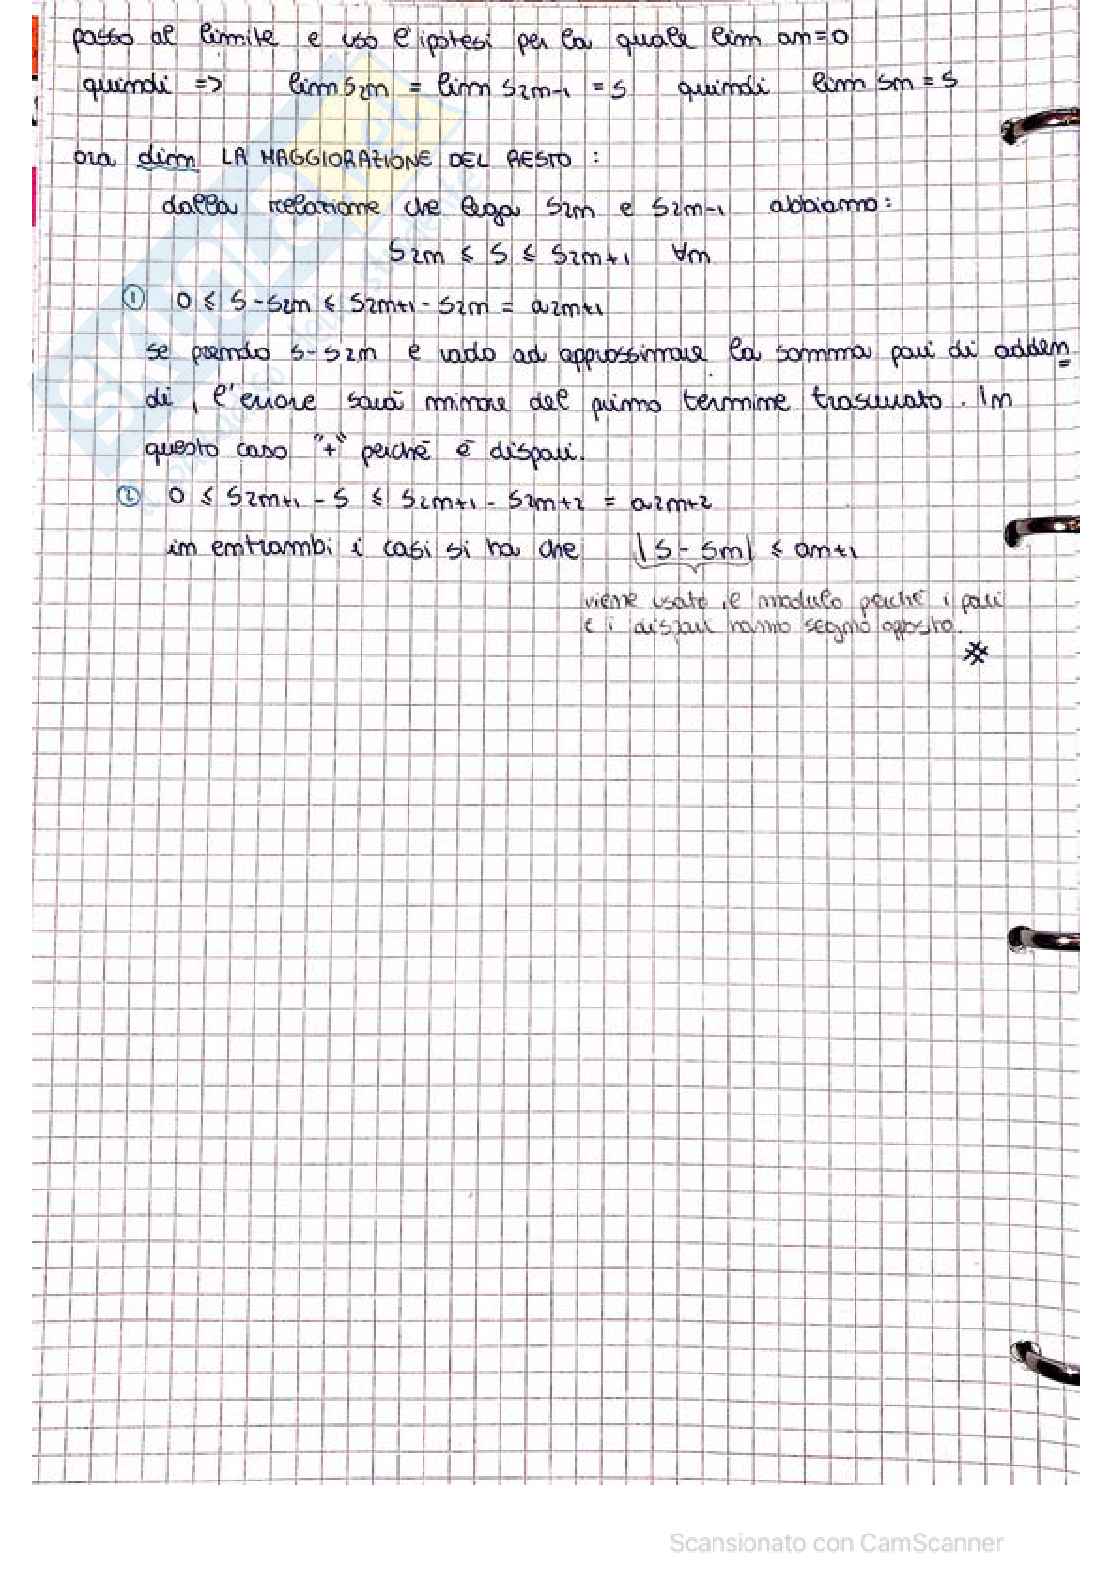 passo al limite e uso l'ipotesi per la quale lim an=0
quindi => lim S2n = lim S2n-1 = S quindi lim Sn = S
ora dim LA MAGGIORAZIONE DEL RESTO :
dalla relazione che lega S2n e S2n-1 abbiamo:
S2n ≤ S ≤ S2n+1 ∀n
① 0 ≤ S-S2n ≤ S2n+1 - S2n = a2n+1
se prendo S-S2n e vado ad approssimare la somma pari di adden
di, l'errore sarà minore del primo termine trascurato. In
questo caso "+" perché è dispari.
② 0 ≤ S2n+1 - S ≤ S2n+1 - S2n+2 = a2n+2
in entrambi i casi si ha che |S - Sn| ≤ an+1
viene usato il modulo perché i pari
e i dispari hanno segno opposto.
Scansionato con CamScanner